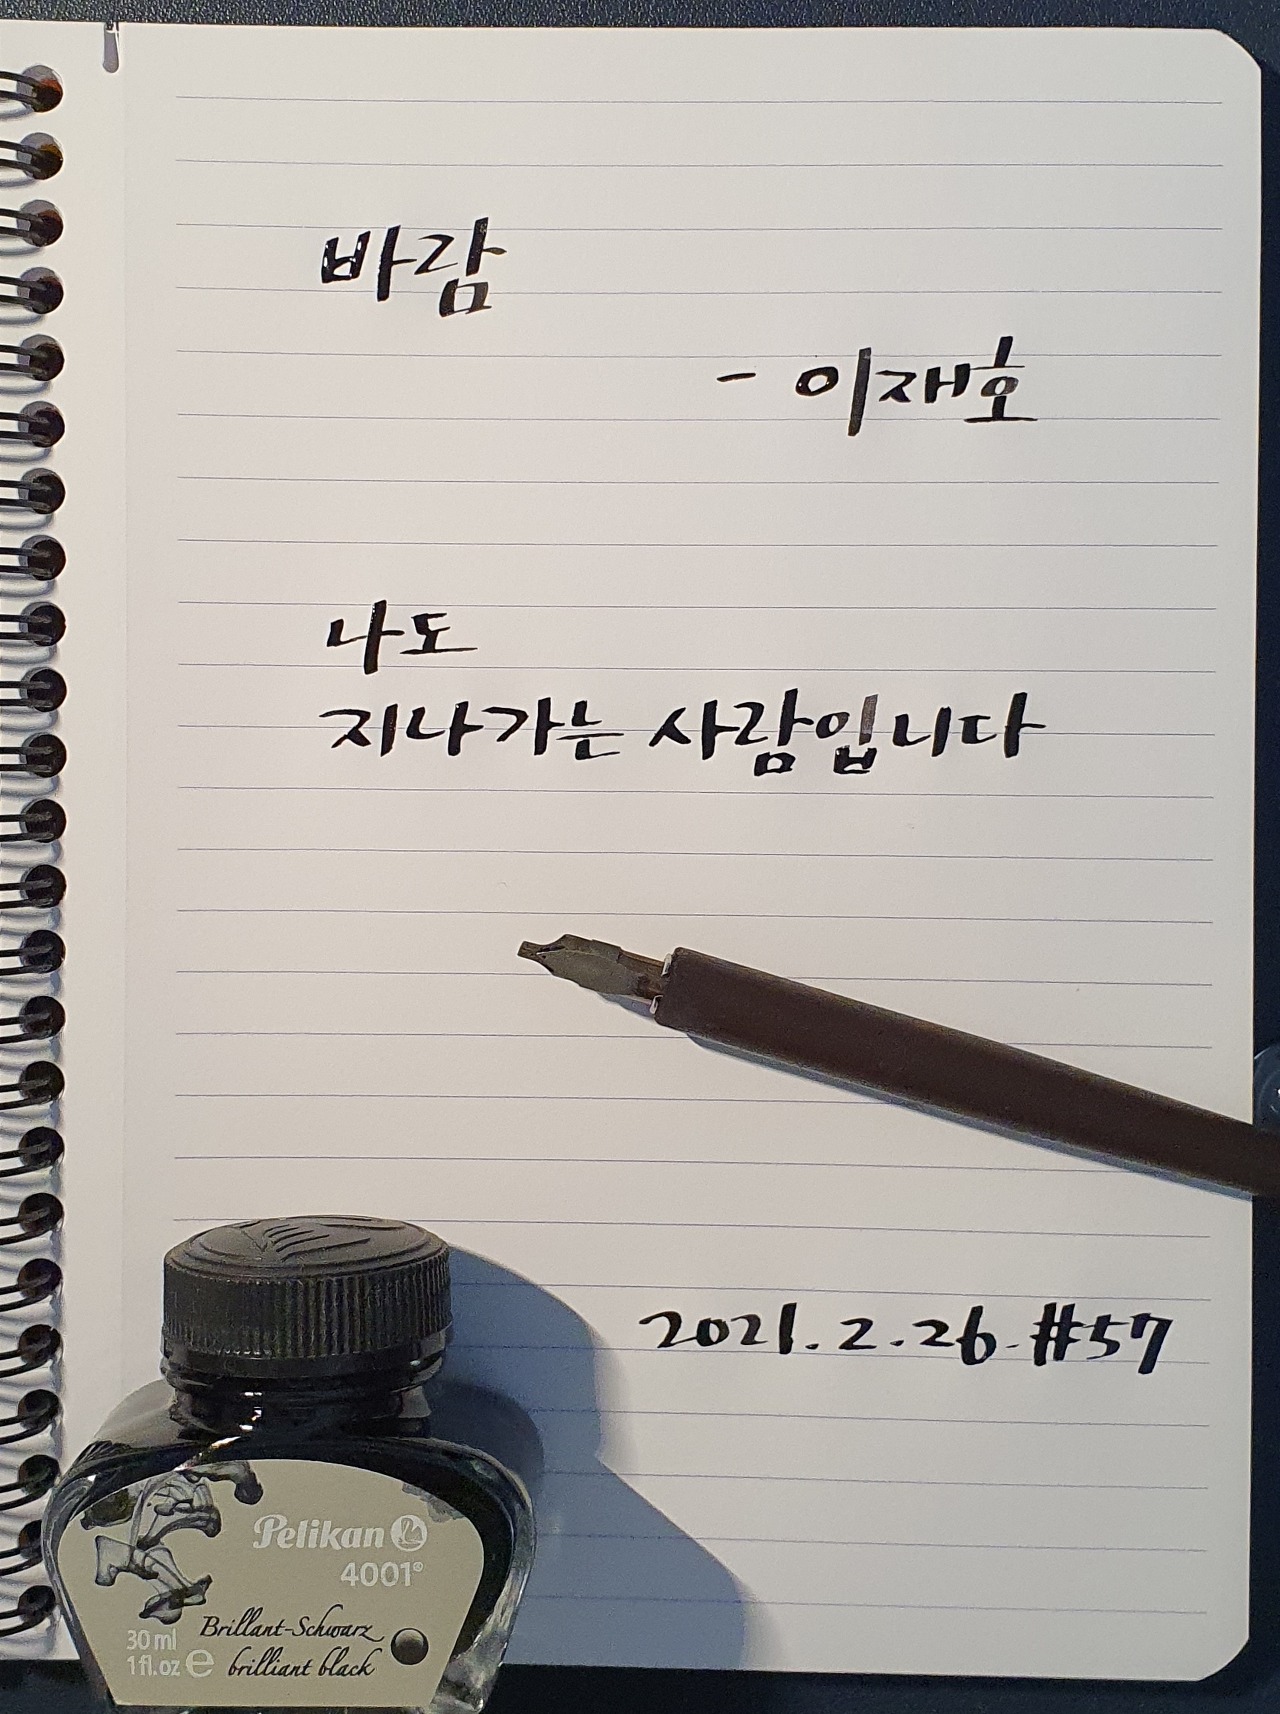 바람
- 이재호
나도
지나가는 사람입니다
2021.2.26.#57
Pelikan
4001®
Brillant-Schwarz
30 ml
1 fl.oz e brilliant black